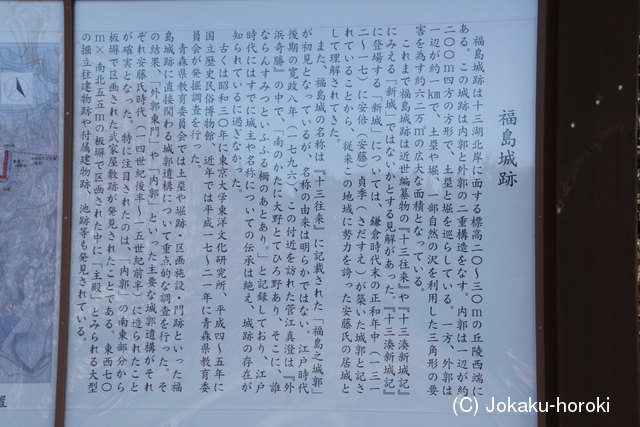 福島城跡
福島城跡は十三湖北岸に面する標高二〇～三〇mの丘陵西端に
ある。この城跡は内郭と外郭の二重構造をなす。内郭は一辺が約
二〇〇m四方の方形で、土塁と堀を巡らしている。一方、外郭は
一辺が約一kmで、土塁や堀、一部自然の沢を利用した三角形の要
害を為す約六二万㎡の広大な面積となっている。
これまで福島城跡は近世編纂物の『十三往来』や『十三湊新城記』
にみえる「新城」ではないかとする見解があった。『十三湊新城記』
に登場する「新城」については、鎌倉時代末の正和年中（一三一
二～一七）に安倍（安藤）貞季（さだすえ）が築いた城郭と記さ
れていることから、従来この地域に勢力を誇った安藤氏の居城と
して理解されてきた。
また、福島城の名称は『十三往来』に記載された「福島之城郭」
が初見となっているが、名称の由来は明らかではない。江戸時代
後期の寛政八年（一七九六）、この付近を訪れた菅江真澄は『外
浜奇勝』の中で、「南のかたに大野とてひろ野あり、そこに、誰
ならんすみつといふふる柵のあとあり。」と記録しており、江戸
時代にはすでに城主や名称についての伝承は絶え、城跡の存在が
知られているに過ぎなかった。
古くは昭和三〇年に東京大学東洋文化研究所、平成四～五年に
国立歴史民俗博物館、近年では平成一七～二一年に青森県教育委
員会が発掘調査を行った。
青森県教育委員会では土塁や堀跡・区画施設・門跡といった福
島城跡に直接関わる城郭遺構について重点的な調査を行った。そ
の結果、「外郭東門」や「内郭」といった主要な城郭遺構がそれ
ぞれ安藤氏の時代（一四世紀後半～一五世紀前半）に造られたこと
が確実となった。特に注目されたのは、「内郭」の南東部分から
板塀で区画された武家屋敷跡が発見されたことである。東西七〇
m×南北五五mの板塀で区画された中に「主殿」とみられる大型
の掘立柱建物跡や付属建物跡、池跡等も発見されている。
置
(C) Jokaku-horoki